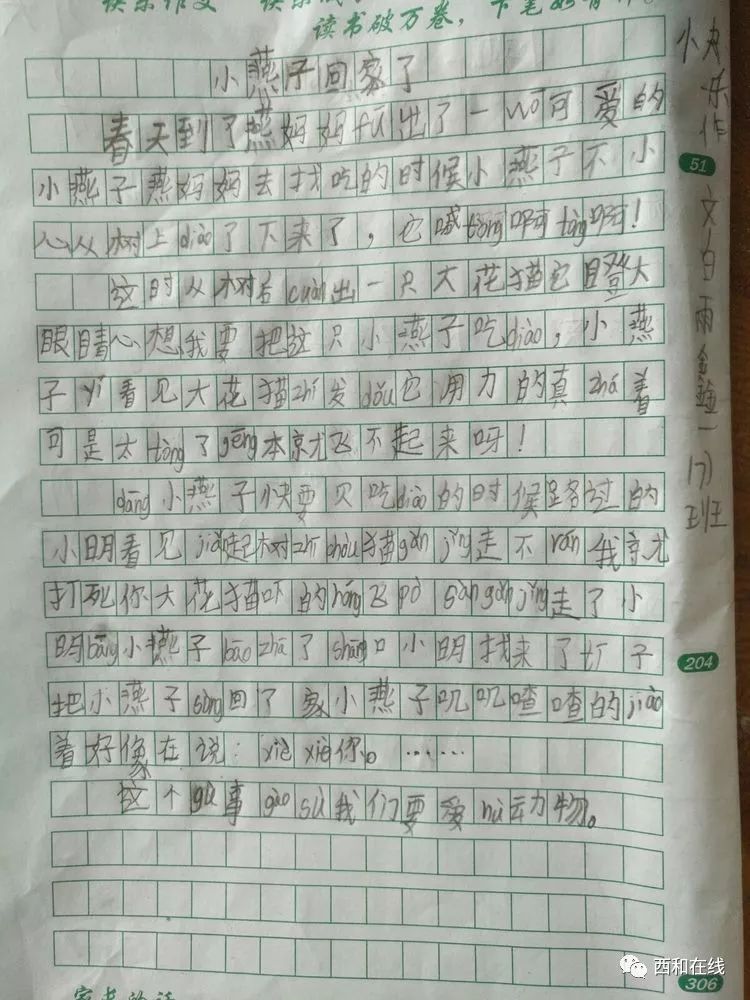 读书破万卷，下笔如有
小燕子回家了
春天到了燕妈妈fū出了一wō可爱的
小燕子燕妈妈去找吃的时候小燕子不小
心从树上diào了下来了，它喊tòng啊tòng啊！
这时从树后cuàn出一只大花猫它瞪大
眼睛心想我要把这只小燕子吃diào，小燕
子yǐ看见大花猫zhī发dǒu它用力的真zhá着
可是太tòng了gēng本京尤飞不起来呀！
dāng小燕子快要贝吃diào的时候足各过的
小明看见jiǎn起树zhī pháu猫gǎn jǐng走不rán我京尤
打死你大花猫吓的hóng飞pò sàn gǎn jǐng走了小
明bāng小燕子bāo zhā了shāng口小明找来了t厂子
把小燕子sòng回了家小燕子叽叽喳喳的jiào
着好像在说：xiè xiè你。……
这个gù事gào sù我们要爱hù动物。
作文
白雨鑫
一17)
班
51
204
306
西和在线